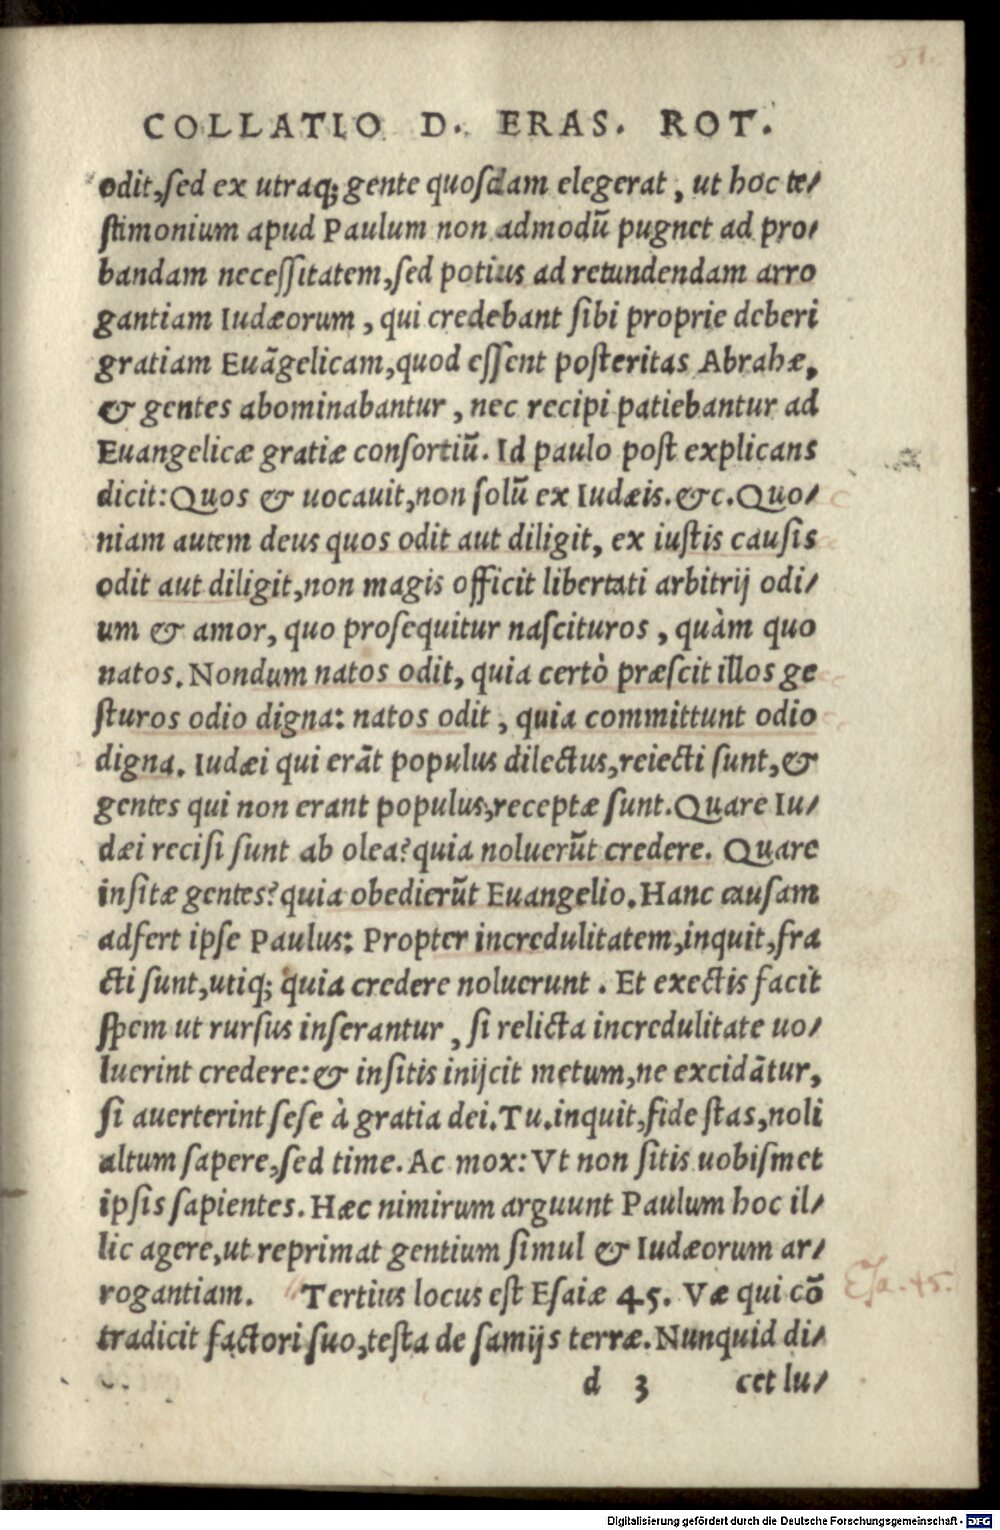 51.
COLLATIO D. ERAS. ROT.
odit, sed ex utraq; gente quosdam elegerat, ut hoc te/
stimonium apud Paulum non admodū pugnet ad pro/
bandam necessitatem, sed potius ad retundendam arro
gantiam Iudæorum, qui credebant sibi proprie deberi
gratiam Euãgelicam, quod essent posteritas Abrahæ,
& gentes abominabantur, nec recipi patiebantur ad
Euangelicæ gratiæ consortiū. Id paulo post explicans
dicit: Quos & uocauit, non solū ex Iudæis. &c. Quo/
niam autem deus quos odit aut diligit, ex iustis causis
odit aut diligit, non magis officit libertati arbitrij odi/
um & amor, quo prosequitur nascituros, quàm quo
natos. Nondum natos odit, quia certò præscit illos ge
sturos odio digna: natos odit, quia committunt odio
digna. Iudæi qui erãt populus dilectus, reiecti sunt, &
gentes qui non erant populus, receptæ sunt. Quare Iu/
dæi recisi sunt ab olea? quia noluerūt credere. Quare
insitæ gentes? quia obedierūt Euangelio. Hanc causam
adfert ipse Paulus: Propter incredulitatem, inquit, fra
cti sunt, utiq; quia credere noluerunt. Et exectis facit
spem ut rursus inserantur, si relicta incredulitate uo/
luerint credere: & insitis inijcit metum, ne excidãtur,
si auerterint sese à gratia dei. Tu. inquit, fide stas, noli
altum sapere, sed time. Ac mox: Vt non sitis uobismet
ipsis sapientes. Hæc nimirum arguunt Paulum hoc il/
lic agere, ut reprimat gentium simul & Iudæorum ar/
rogantiam. Tertius locus est Esaiæ 45. Væ qui cõ
Esa. 45.
tradicit factori suo, testa de samijs terræ. Nunquid di/
d 3 cet lu/
Digitalisierung gefördert durch die Deutsche Forschungsgemeinschaft - DFG